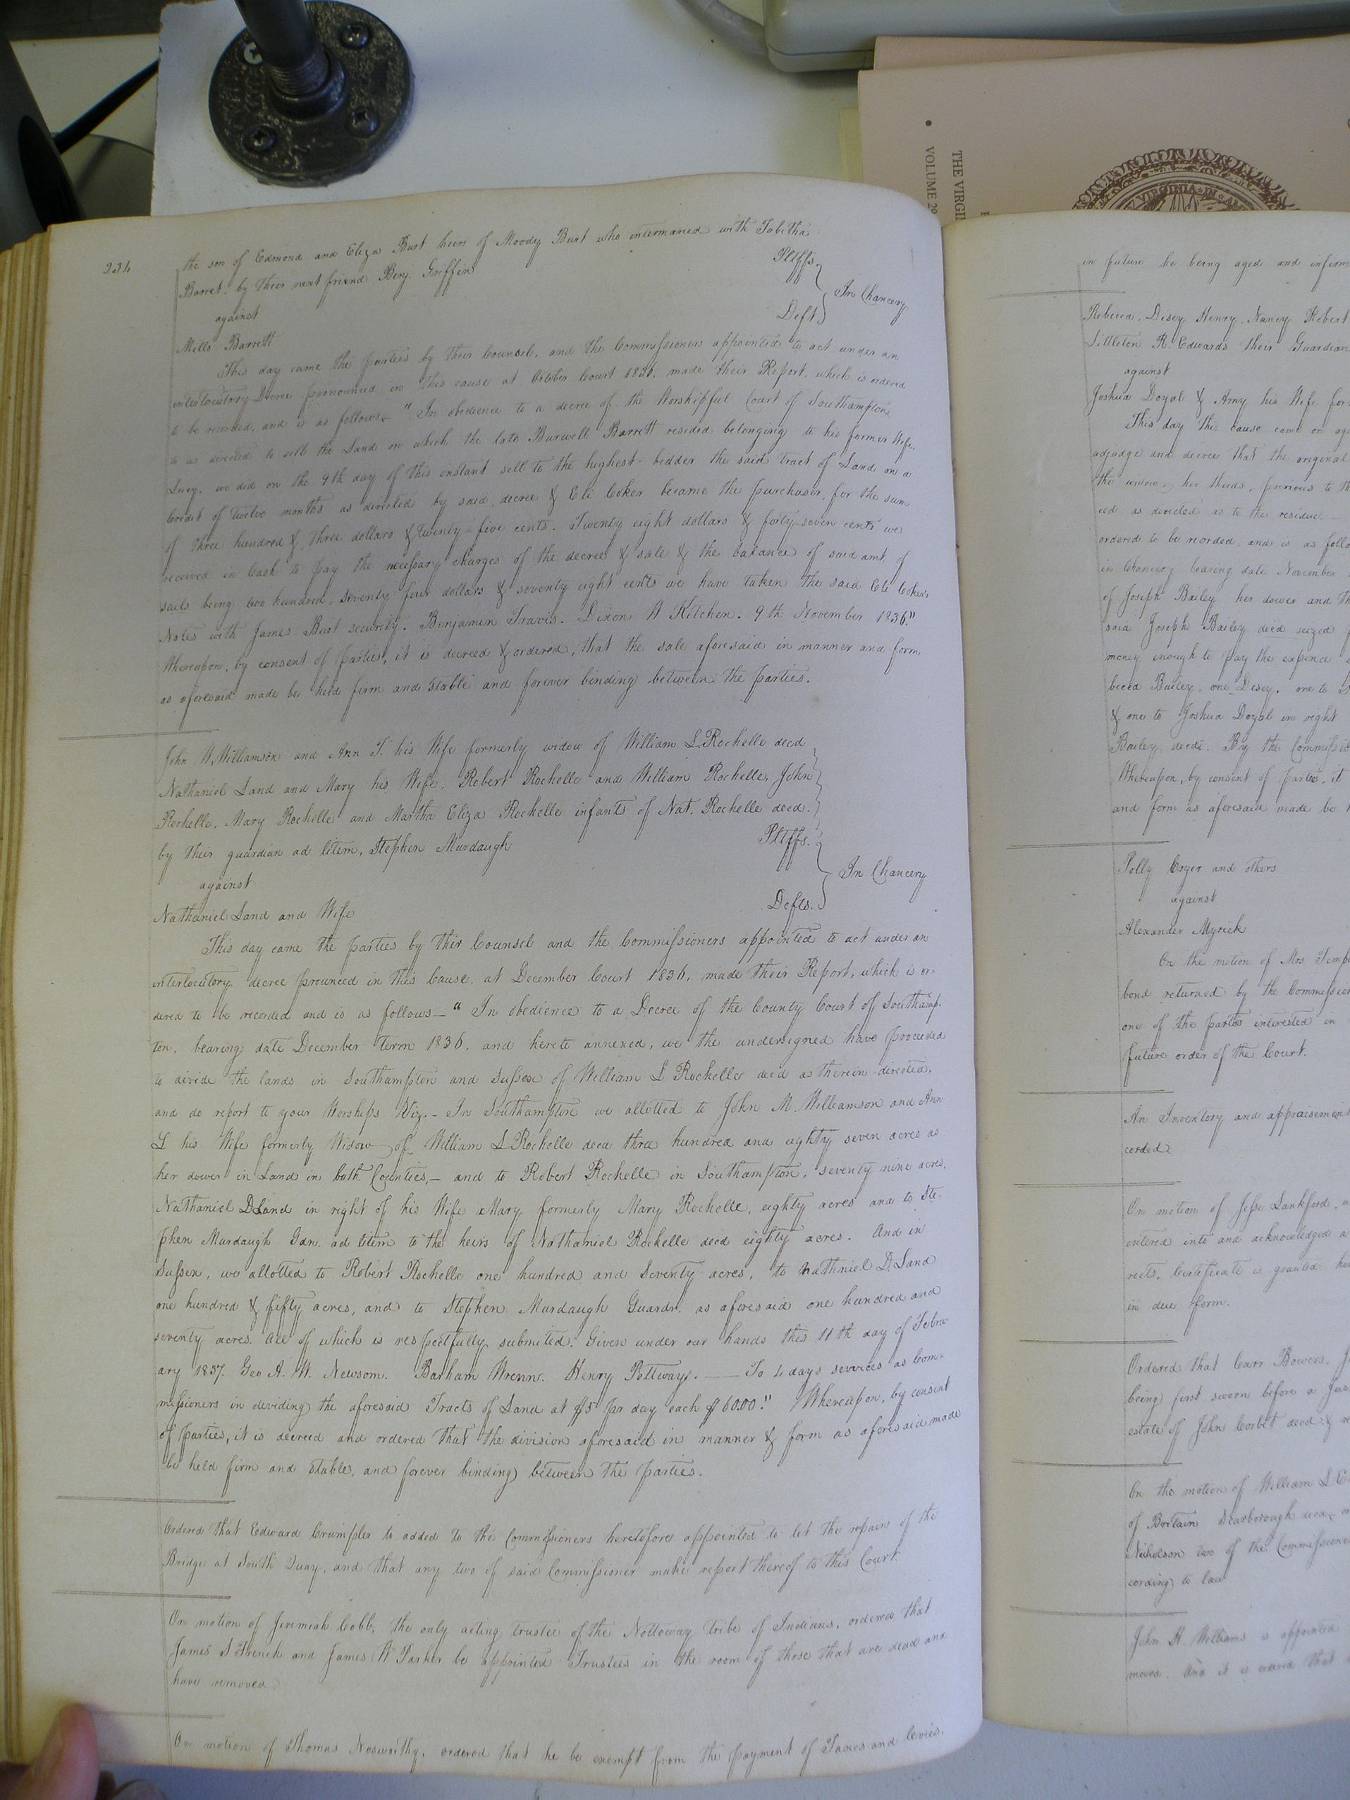 234
the son of Edmond and Eliza Burt heirs of Moody Burt who intermarried with Tabitha
Barret by their next friend Benj. Griffin Pltffs.
against In Chancery
Mills Barrett Deft
This day came the parties by their Counsel, and the Commissioners appointed to act under an
interlocutory Decree pronounced in this cause at October Court 1836, made their Report, which is ordered
to be recorded, and is as follows "In obedience to a decree of the Worshipful Court of Southampton
to us directed to sell the Land on which the late Burwell Barrett resided belonging to his former Wife
Lucy, we did on the 9th day of this instant sell to the highest bidder the said tract of Land on a
Credit of twelve months as directed by said decree & Eli Coker became the purchaser, for the sum
of three hundred & three dollars & twenty-five cents. Twenty eight dollars & forty-seven cents we
received in Cash to pay the necessary charges of the decree & sale & the balance of said amt. of
sails being two hundred, seventy four dollars & seventy eight cents we have taken the said Eli Cokers
Notes with James Burt security. Benjamin Travis. Dixon W Kitchen. 9th November 1836."
Whereupon, by consent of parties, it is decreed & ordered, that the sale aforesaid in manner and form
as aforesaid made be held firm and stable and forever binding between the parties.
John W. Williamson and Ann T. his Wife formerly widow of William L. Rochelle decd
Nathaniel Land and Mary his Wife, Robert Rochelle and William Rochelle, John
Rochelle, Mary Rochelle and Martha Eliza Rochelle infants of Nat. Rochelle decd.
by their guardian ad litem, Stephen Murdaugh Pltffs.
against In Chancery
Nathaniel Land and Wife Defts.
This day came the parties by their Counsel and the Commissioners appointed to act under an
interlocutory decree prounced in this Cause, at December Court 1836, made their Report, which is or-
dered to be recorded and is as follows— "In obedience to a Decree of the County Court of Southamp-
ton, bearing date December term 1836, and hereto annexed, we the undersigned have proceeded
to divide the lands in Southampton and Sussex of William L Rochelle decd as therein directed,
and do report to your Worships Viz.— In Southampton we allotted to John M. Williamson and Ann
L his Wife formerly Widow of William L Rochelle decd three hundred and eighty seven acres as
her dower in Land in both Counties,— and to Robert Rochelle in Southampton, seventy nine acres,
Nathaniel D Land in right of his Wife Mary formerly Mary Rochelle, eighty acres and to Ste-
phen Murdaugh Gdn. ad litem to the heirs of Nathaniel Rochelle decd eighty acres. And in
Sussex, we allotted to Robert Rochelle one hundred and Seventy acres, to Nathniel D Land
one hundred & fifty acres, and to Stephen Murdaugh Guardn. as aforesaid one hundred and
seventy acres. all of which is respectfully submitted. Given under our hands this 11th day of Febru-
ary 1837. Geo A. W. Newsom. Barham Wrenn. Henry Pottway. — To 4 days services as Com-
missioners in dividing the aforesaid Tracts of Land at $5 par day each $60.00." Whereupon, by consent
of parties, it is decreed and ordered that the division aforesaid in manner & form as aforesaid made
be held firm and stable, and forever binding between the parties.
Ordered that Edward Crumpler is added to the Commissioners heretofore appointed to let the repairs of the
Bridge at South Quay, and that any two of said Commissioner make report thereof to this Court.
On motion of Jeremiah Cobb, the only acting trustee of the Nottoway tribe of Indians, ordered that
James S French and James W Parker be appointed Trustees in the room of those that are dead and
have removed
On motion of Thomas Nosworthy, ordered that he be exempt from the payment of Taxes and levies
in future he being aged and infirm
Rebecca, Desey, Henry, Nancy, Robert
Littleton R. Edwards their Guardian
against
Joshua Doyal & Amy his Wife for
This day this cause came on
adjudge and decree that the original
the widow, her thirds, previous to
ed as directed as to the residue
ordered to be recorded, and is as follo
in Chancery bearing date November
of Joseph Bailey her dower and
said Joseph Bailey died seized
money enough to pay the expence
becca Bailey, one Desey, one to
& one to Joshua Doyal in right
Bailey decd. By the Commissi
Whereupon, by consent of parties, it
and form as aforesaid made be
Polly Coger and others
against
Alexander Myrick
On the motion of Mrs. Temp
bond returned by the Commission
one of the parties interested in
future order of the Court.
An Inventory and appraisement
corded
On motion of Jesse Lankford,
entered into and acknowledged a
rects, Certificate is granted
in due form.
Ordered that Carr Bowers,
being first sworn before a Jus
estate of John Corbet decd &
On the motion of William L
of Bertain Scarbrough decd
Nicholson two of the Commissione
cording to law
John H. Williams is appointed
moved. And it is
THE VIRGI
VOLUME 29
VIRGINIA